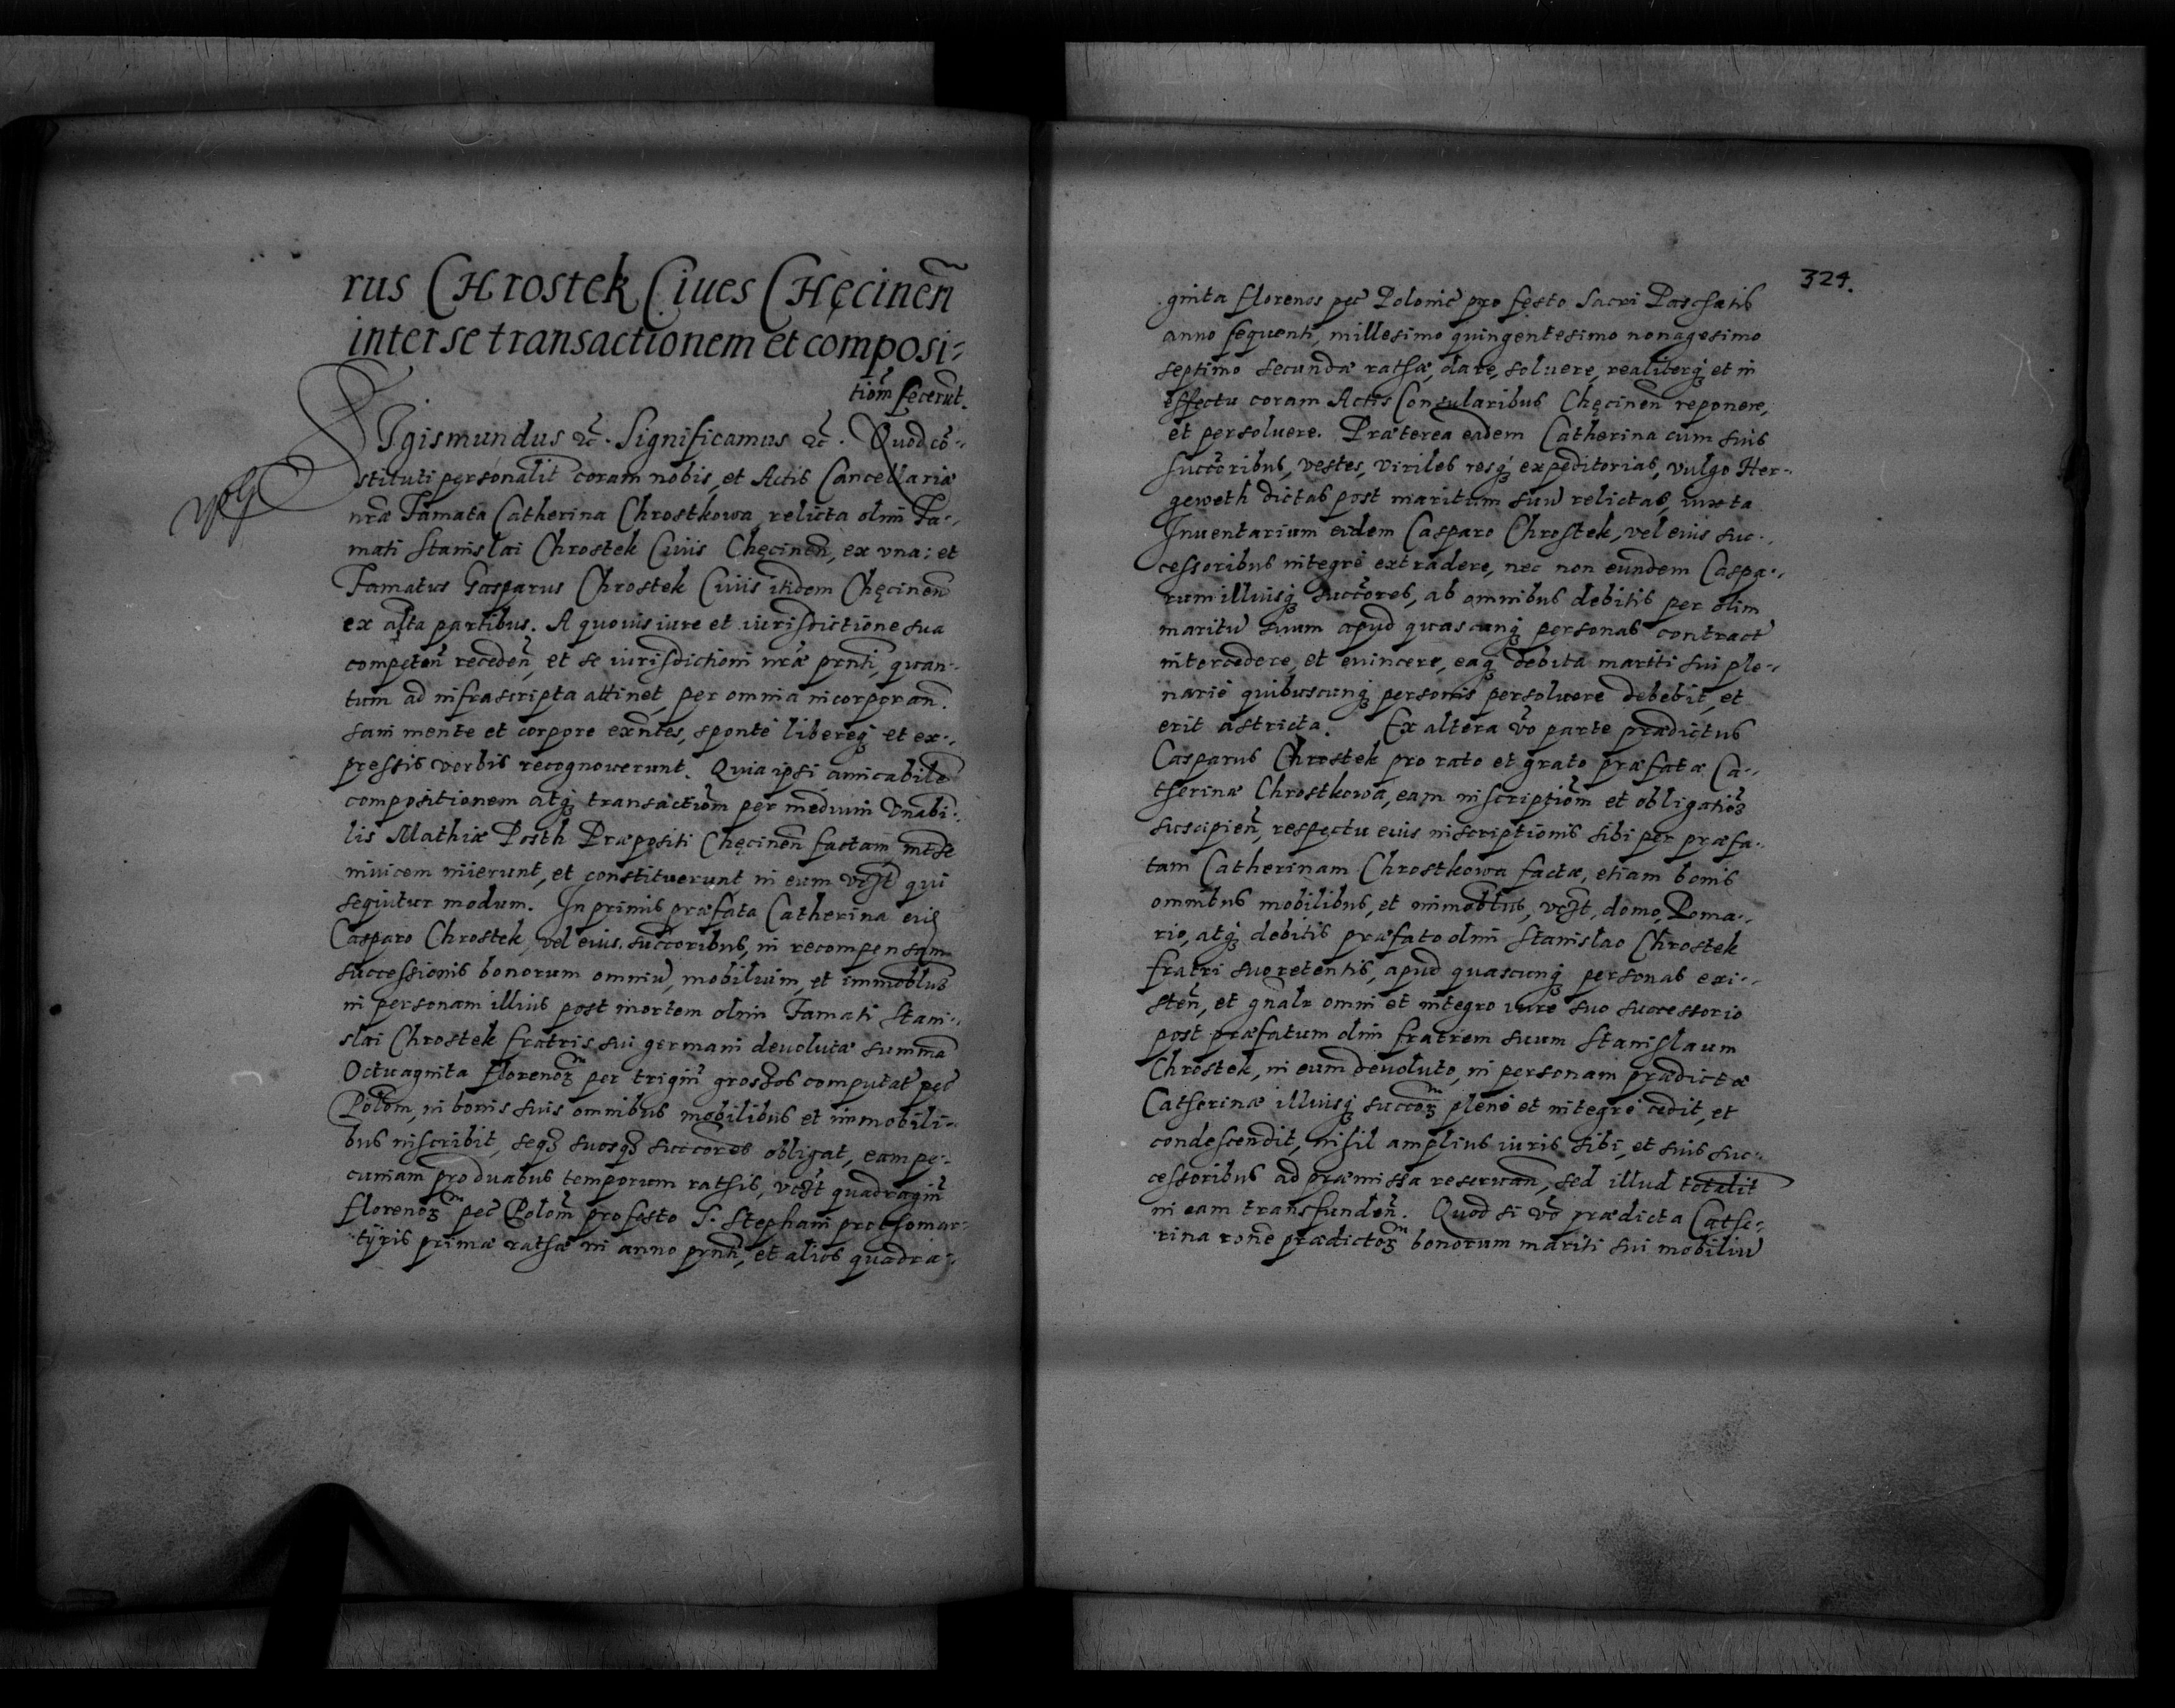 rus CHrostek Ciues CHęcineñ
inter se transactionem et composi-
tiom̃ fecerũt.
SIgismundus ꝛc̃. Significamus ꝛc̃. Quod cõ-
stituti personalit̃ coram nobis, et Actis Cancellariæ
nr̃æ Famata Catherina Chrostkowa relicta olim Fa-
mati Stanislai Chrostek Ciuis Chęcineñ, ex vna: et
Famatus Gasparus Chrostek Ciuis itidem Chęcineñ
ex alta partibus. A quouis iure et iurisdictione sua
competeñ recedeñ, et se iurisdictioni nr̃æ pr̃nti, quan-
tum ad infrascripta attinet, per omnia incorporañ.
sani mente et corpore exñtes, sponte libereq̃ et ex-
pressis verbis recognouerunt. Quia ipsi amicabilẽ
compositionem atq̃ transactiom̃ per medium Vnabi-
lis Mathiæ Posth Præpositi Chęcineñ factam, int̃ se
inuicem inierunt, et constituerunt in eum vẽꝫt qui
sequitur modum. In primis præfata Catherina eid̃
Casparo Chrostek, vel eius succoribus, in recompensam
successionis bonorum omniũ, mobilium, et immobl̃ius
in personam illius post mortem olim Famati Stani-
slai Chrostek fratris sui germani deuolutæ summã
Octuaginta florenoꝝ per trigiñ grossos computat̃ pec̃
Polom̃, in bonis suis omnibus mobilibus et immobili-
bus inscribit, seqꝫ suosqꝫ succores obligat, eam pe-
cuniam pro duabus temporum rathis, vẽꝫt quadragiñ
florenoꝝ pec̃ Polom̃ pro festo S. Stephani prothomar-
tÿris primæ rathæ in anno pr̃nti, et alios quadra-
324.
ginta florenos pec̃ Polonic̃ pro festo Sacri Paschatis
anno sequenti, millesimo quingentesimo nonagesimo
septimo secundæ rathæ, dare, soluere, realiterq̃ et in
effectu coram Actis Consularibus Chęcineñ reponere,
et persoluere. Præterea eadem Catherina cum suis
succoribus, vestes, viriles resq̃ expeditorias, vulgo Her-
geweth dictas post maritum suũ relictas, iuxta
Inuentarium eidem Casparo Chrostek, vel eius suc-
cessoribus integrè extradere, nec non eundem Caspa-
rum illiusq̃ succores, ab omnibus debitis per olim
maritũ suum apud quascunq̃ personas contract̃
intercedere, et euincere, eaq̃ debita mariti sui ple-
nariè quibuscunq̃ personis persoluere debebit, et
erit astricta. Ex altera võ parte prædictus
Casparus Chrostek pro rato et grato præfatæ Ca-
therinæ Chrostkowa, eam inscriptiom̃ et obligatioꝫ
suscipieñ, respectu eius inscriptionis sibi per præfa-
tam Catherinam Chrostkowa factæ, etiam bonis
omnibus mobilibus, et immobl̃ius, vẽꝫt, domo, Poma-
rio, atq̃ debitis præfato olim Stanislao Chrostek
fratri suo retentis, apud quascunq̃ personas exi-
steñ, et gñalr omni et integro iure suo successorio
post præfatum olim fratrem suum Stanislaum
Chrostek, in eum deuoluto, in personam prædictæ
Catherinæ illiusq̃ succoꝝ plenè et integrè cedit, et
condescendit, nihil amplius iuris sibi, et suis suc-
cessoribus ad præmissa reseruañ, sed illud totalit̃
in eam transfundeñ. Quod si võ prædicta Cathe-
rina rõne prædictoꝝ bonorum mariti sui mobiliũ